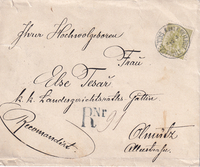 Ihrer Hochwolgeboren
Frau
Else Tesař
k. k. Landesgerichtsraths Gattin
R Nr
Recomandirt
Olmütz